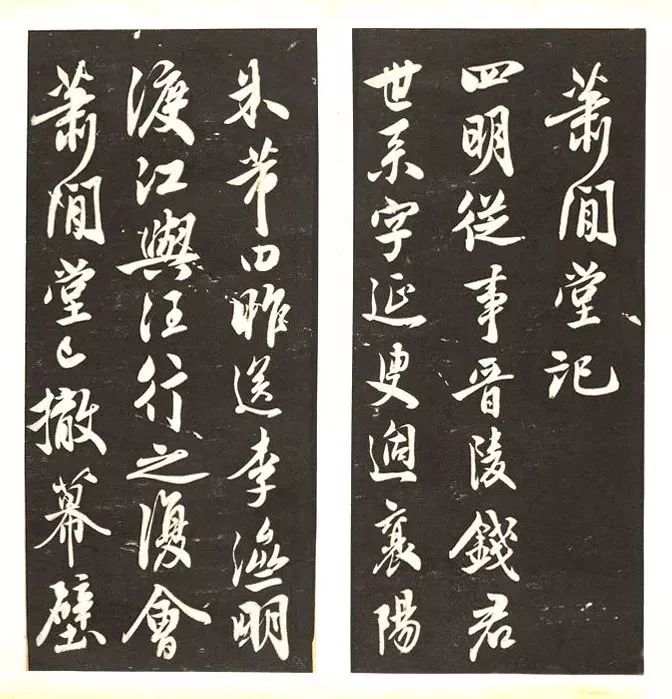 蕭閒堂記
四明從事晋陵錢君
世系字延叟過襄陽
米芾曰昨送李明
渡江與汪行之復會
蕭閒堂〻撤幕壁